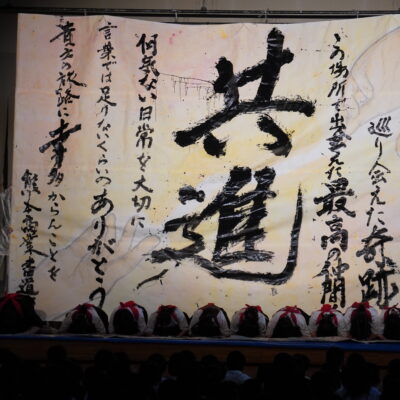 巡り会えた奇跡
この場所で出会えた最高の仲間
共進
何気ない日常を大切に
言葉では足りないくらいのありがとう
貴方の旅路に幸多からんことを
熊本商業書道